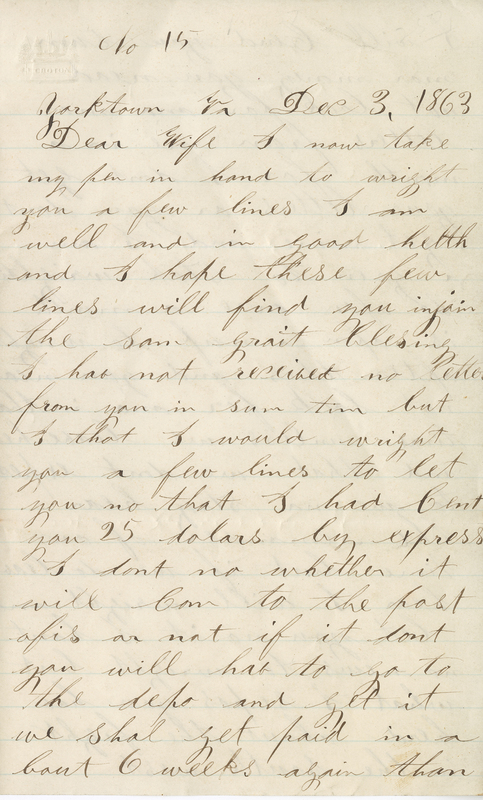 No 15
Yorktown Va Dec 3, 1863
Dear Wife I now take
my pen in hand to wright
you a few lines I am
well and in good helth
and I hope these few
lines will find you injoin
the sam grait blesing
I hav not received no letter
from you in sum tim but
I that I would wright
you a few lines to let
you no that I had Cent
you 25 dolars by express
I dont no whether it
will Com to the post
ofis or not if it dont
you will hav to go to
the depo and get it
we shal get paid in a
bout 6 weeks again than